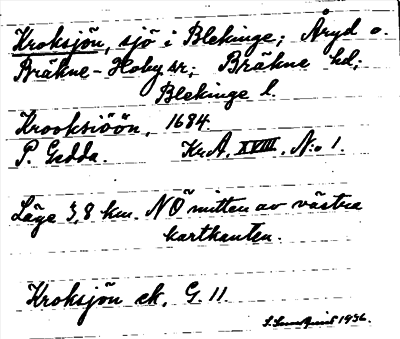 Kroksjön, sjö i Blekinge; Åryd o.
Bräkne-Hoby sr; Bräkne hd;
Blekinge l.
Krooksiöön, 1684.
P. Gedda. Kr.A. XVIII. N:o 1.
Läge 3,8 km. NÖ mitten av västra
kartkanten.
Kroksjön ek. G. 11
1936.